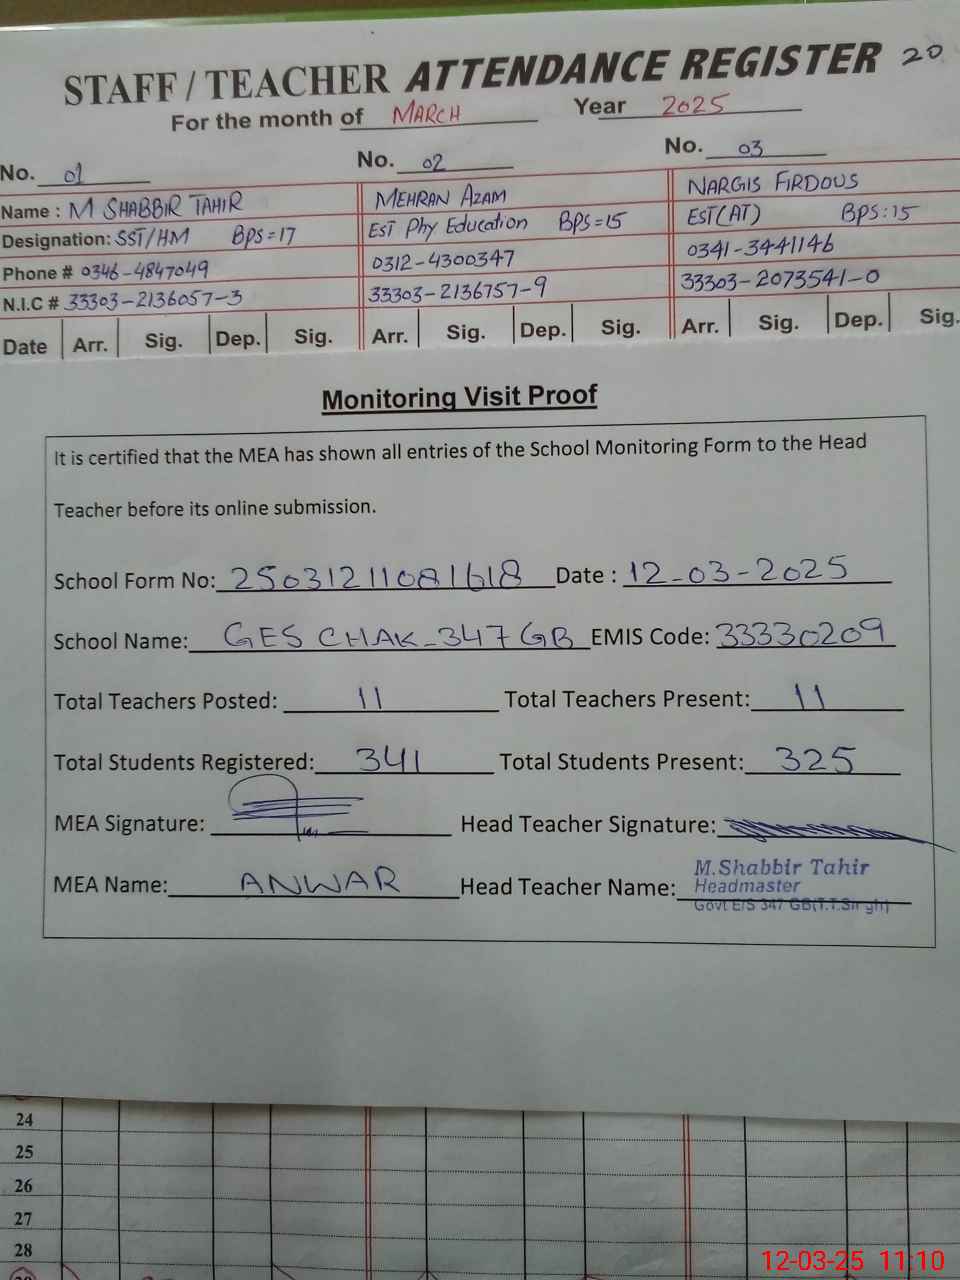 STAFF / TEACHER ATTENDANCE REGISTER 20
For the month of MARCH Year 2025
No. 01 No. 02 No. 03
Name : M SHABBIR TAHIR MEHRAN AZAM NARGIS FIRDOUS
Designation: SST/HM BPS=17 EST Phy Education BPS=15 EST(AT) BPS:15
Phone # 0346-4847049 0312-4300347 0341-3441146
N.I.C # 33303-2136057-3 33303-2136757-9 33303-2073541-0
Date Arr. Sig. Dep. Sig. Arr. Sig. Dep. Sig. Arr. Sig. Dep. Sig.
Monitoring Visit Proof
It is certified that the MEA has shown all entries of the School Monitoring Form to the Head
Teacher before its online submission.
School Form No: 25031211081618 Date : 12-03-2025
School Name: GES CHAK-347 GB EMIS Code: 33330209
Total Teachers Posted: 11 Total Teachers Present: 11
Total Students Registered: 341 Total Students Present: 325
MEA Signature: Head Teacher Signature:
MEA Name: ANWAR Head Teacher Name: M.Shabbir Tahir
Headmaster
Govt E/S 347 GB(T.T.Singh)
24
25
26
27
28
12-03-25 11:10